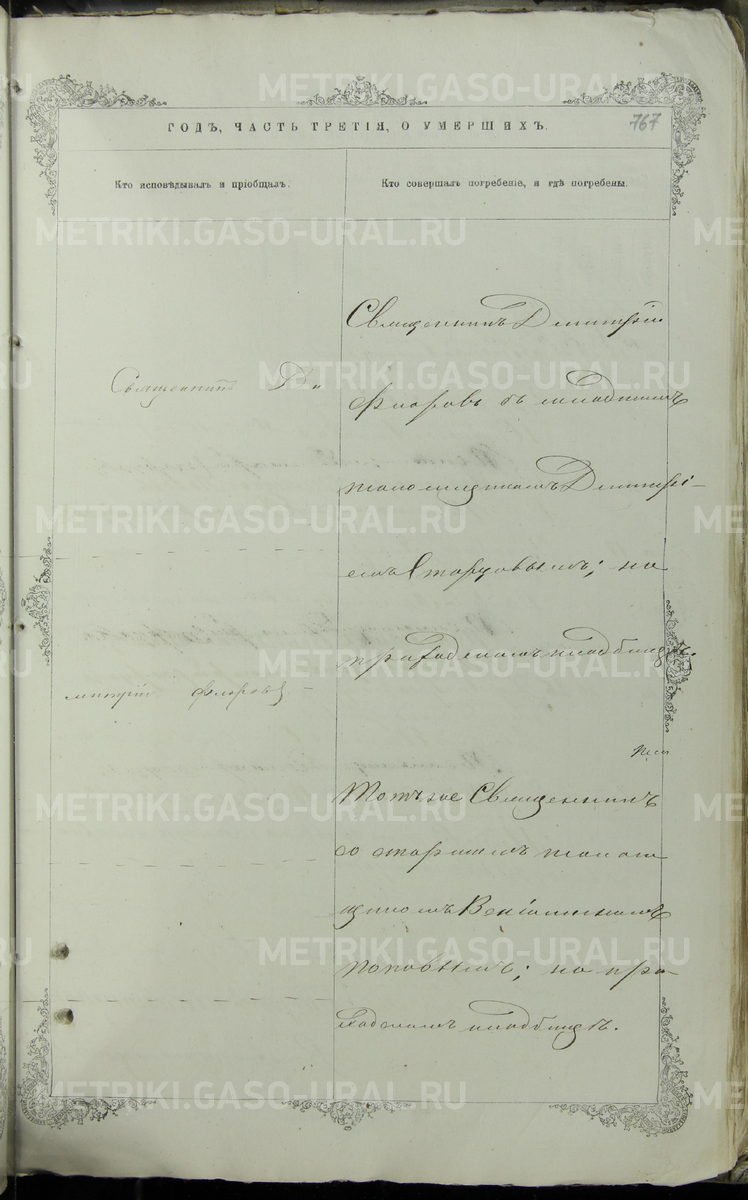 ГОДЪ, ЧАСТЬ ТРЕТІЯ, О УМЕРШИХЪ.
767
Кто исповѣдывалъ и пріобщалъ.
Кто совершалъ погребеніе, и гдѣ погребены.
Священникъ Ди
митрій Флоровъ
Священникъ Димитрій
Флоровъ съ младшимъ
псаломщикомъ Димитрі-
емъ Старцовымъ; на
приходскомъ кладбищѣ
Тотъ же Священникъ
со старшимъ псалом
щикомъ Веніаминомъ
Поповымъ; на при-
ходскомъ кладбищѣ.
METRIKI.GASO-URAL.RU